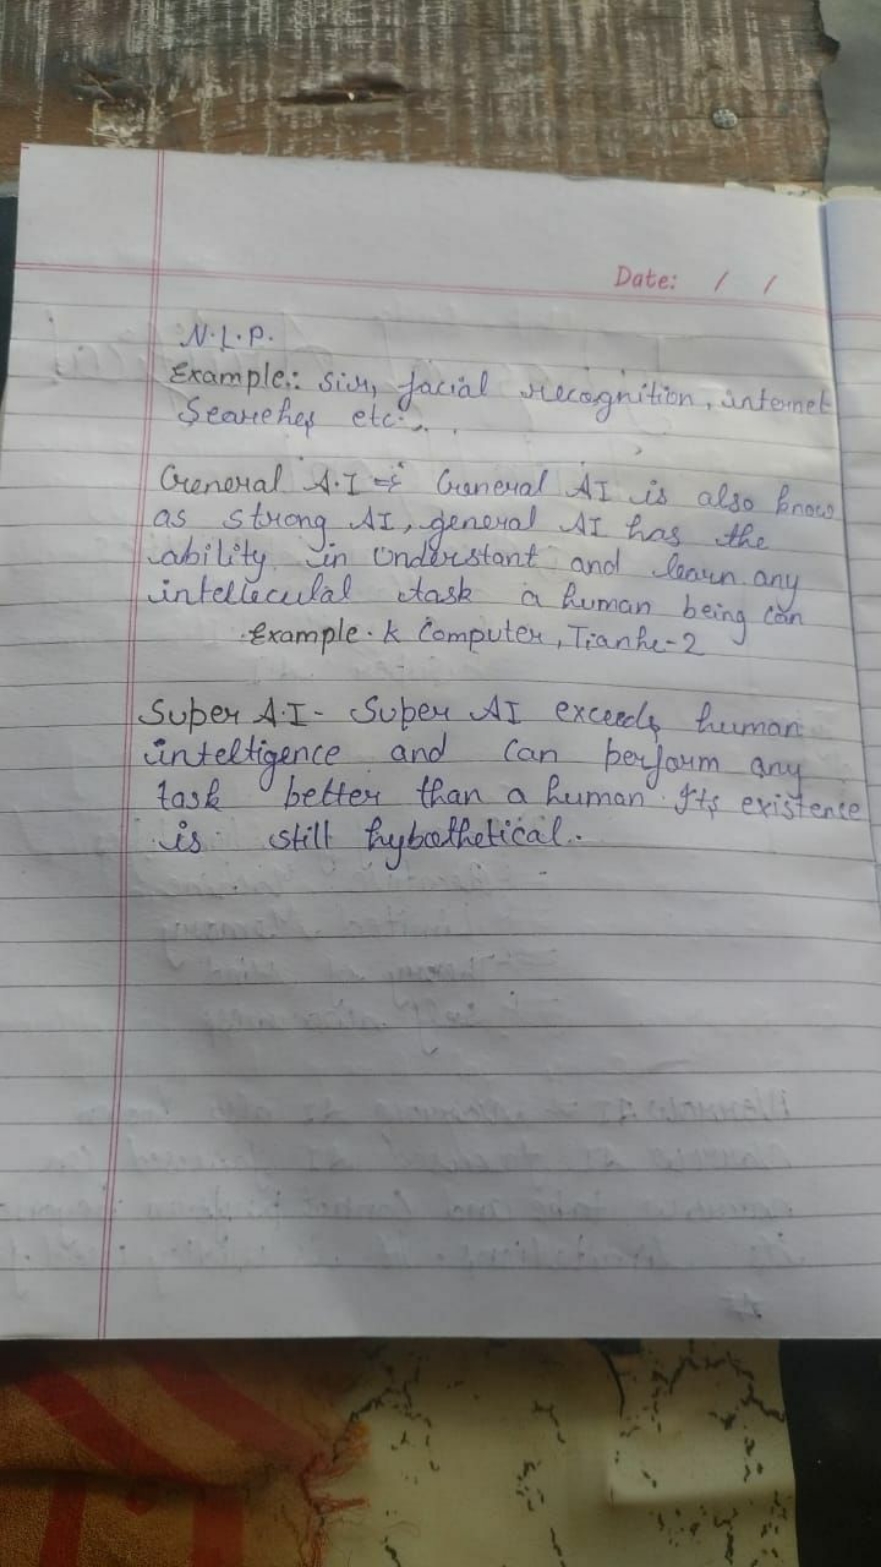 Date: / /
N.L.P.
Example: Siri, facial recognition, internet
Searches etc.
General A.I → General AI is also know
as strong AI, general AI has the
ability in Understant and learn any
intellecular task a human being can
Example. K Computer, Tianhe-2
Super A.I - Super AI exceeds human
inteltigence and can perform any
task better than a human. Its existence
is still hybothetical.